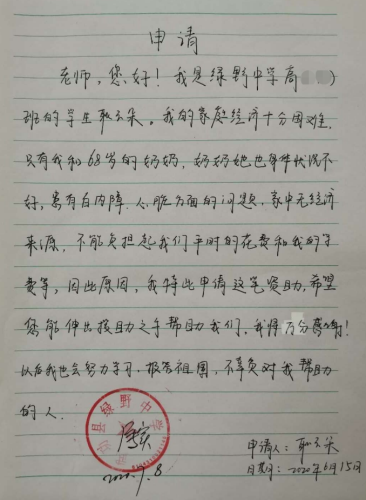 申请
老师，您好！我是绿野中学高
班的学生耿云朵。我的家庭经济十分困难，
只有我和68岁的奶奶，奶奶她也身体状况不
好，患有白内障、心脏方面的问题，家中无经济
来源，不能负担起我们平时的花费和我的学
费等，因此原因，我特此申请这笔资助，希望
您能伸出援助之手帮助我们，我得万分感谢！
以后我也会努力学习，报答祖国，不辜负对我帮助
的人。
县绿野中学
属实
申请人：耿云朵
日期：2020年6月15日